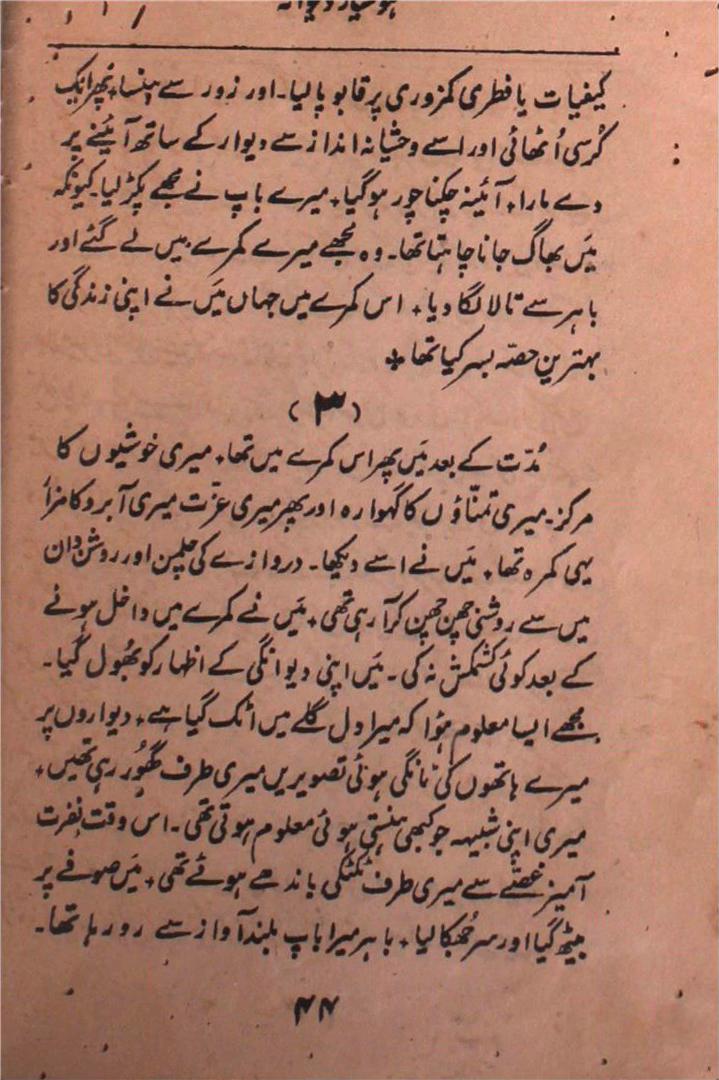 کیفیات یا فطری کمزوری پر قابو پا لیا۔ اور زور سے ہنسا، پھر ایک
کُرسی اُٹھائی اور اسے وحشیانہ انداز سے دیوار کے ساتھ آئینے پر
دے مارا، آئینہ چکنا چور ہو گیا، میرے باپ نے مجھے پکڑ لیا کیونکہ
مَیں بھاگ جانا چاہتا تھا۔ وہ مجھے میرے کمرے میں لے گئے اور
باہر سے تالا لگا دیا، اس کمرے میں جہاں مَیں نے اپنی زندگی کا
بہترین حصّہ بسر کیا تھا *
(۳)
مُدّت کے بعد مَیں پھر اس کمرے میں تھا، میری خوشیوں کا
مرکز۔ میری تمنّاؤں کا گہوارہ اور پھر میری عزّت میری آبرو کا مزار
یہی کمرہ تھا، مَیں نے اسے دیکھا۔ دروازے کی چلمن اور روشن دان
میں سے روشنی چھن چھن کر آ رہی تھی، مَیں نے کمرے میں داخل ہونے
کے بعد کوئی کشمکش نہ کی۔ مَیں اپنی دیوانگی کے اظہار کو بھُول گیا۔
مجھے ایسا معلوم ہؤا کہ میرا دل گلے میں اٹک گیا ہے، دیواروں پر
میرے ہاتھوں کی ٹانگی ہوئی تصویریں میری طرف گھُور رہی تھیں،
میری اپنی شبیہہ جو کبھی ہنستی ہوئی معلوم ہوتی تھی۔ اس وقت نفرت
آمیز غصّے سے میری طرف ٹکٹکی باندھے ہوئے تھی، مَیں صوفے پر
بیٹھ گیا اور سر جھُکا لیا، باہر میرا باپ بلند آواز سے رو رہا تھا۔
۴۴